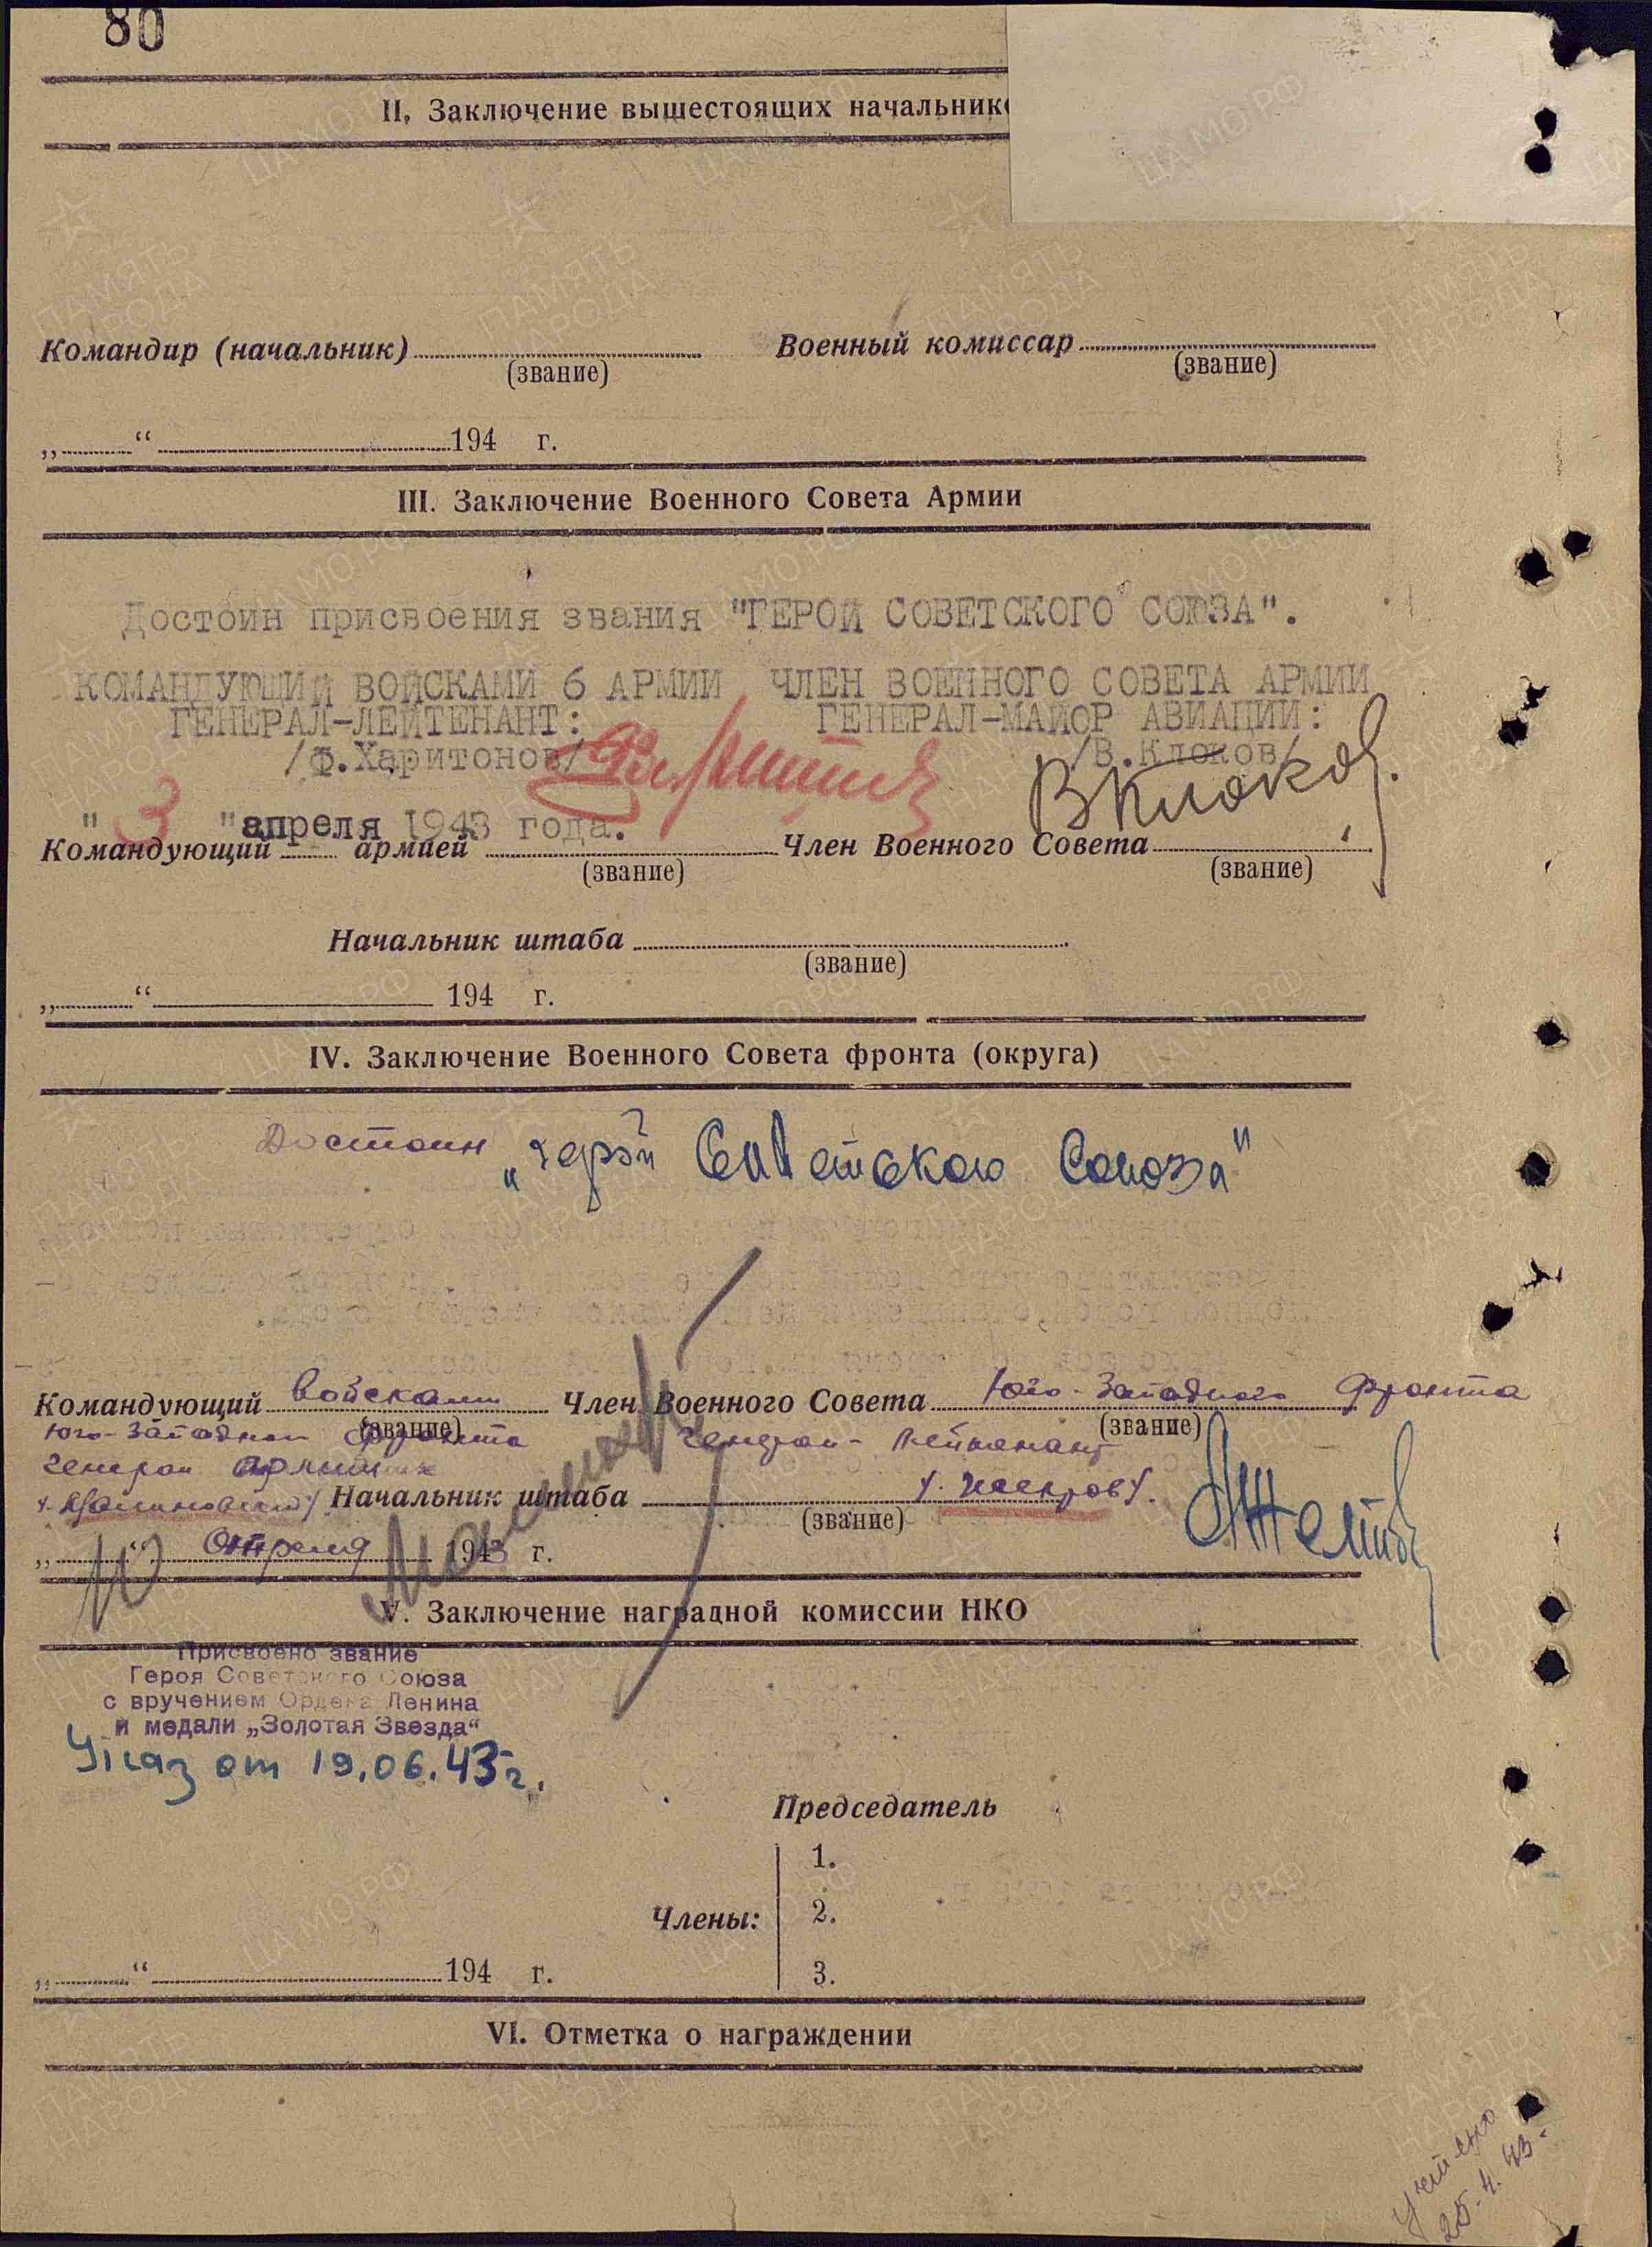 80
II. Заключение вышестоящих начальник
Командир (начальник) Военный комиссар
(звание) (звание)
„ “ 194 г.
III. Заключение Военного Совета Армии
Достоин присвоения звания "ГЕРОЙ СОВЕТСКОГО СОЮЗА".
КОМАНДУЮЩИЙ ВОЙСКАМИ 6 АРМИИ ЧЛЕН ВОЕННОГО СОВЕТА АРМИИ
ГЕНЕРАЛ-ЛЕЙТЕНАНТ: ГЕНЕРАЛ-МАЙОР АВИАЦИИ:
/Ф.Харитонов/ /В.Клоков/
ВКлоков
" 3 " апреля 1943 года.
Командующий армией Член Военного Совета
(звание) (звание)
Начальник штаба
(звание)
„ “ 194 г.
IV. Заключение Военного Совета фронта (округа)
Достоин „Герой Советского Союза"
Командующий войсками Член Военного Совета Юго-Западного Фронта
(звание) (звание)
Юго-Западного фронта генерал-лейтенант
генерал армии
Начальник штаба
(звание)
„10“ Апреля 1943 г.
V. Заключение наградной комиссии НКО
Присвоено звание
Героя Советского Союза
с вручением Ордена Ленина
и медали „Золотая Звезда"
Указ от 19.06.43г.
Председатель
1.
Члены: 2.
3.
„ “ 194 г.
VI. Отметка о награждении
Учтено
25.4.43.
ПАМЯТЬ НАРОДА
ЦА МО.РФ